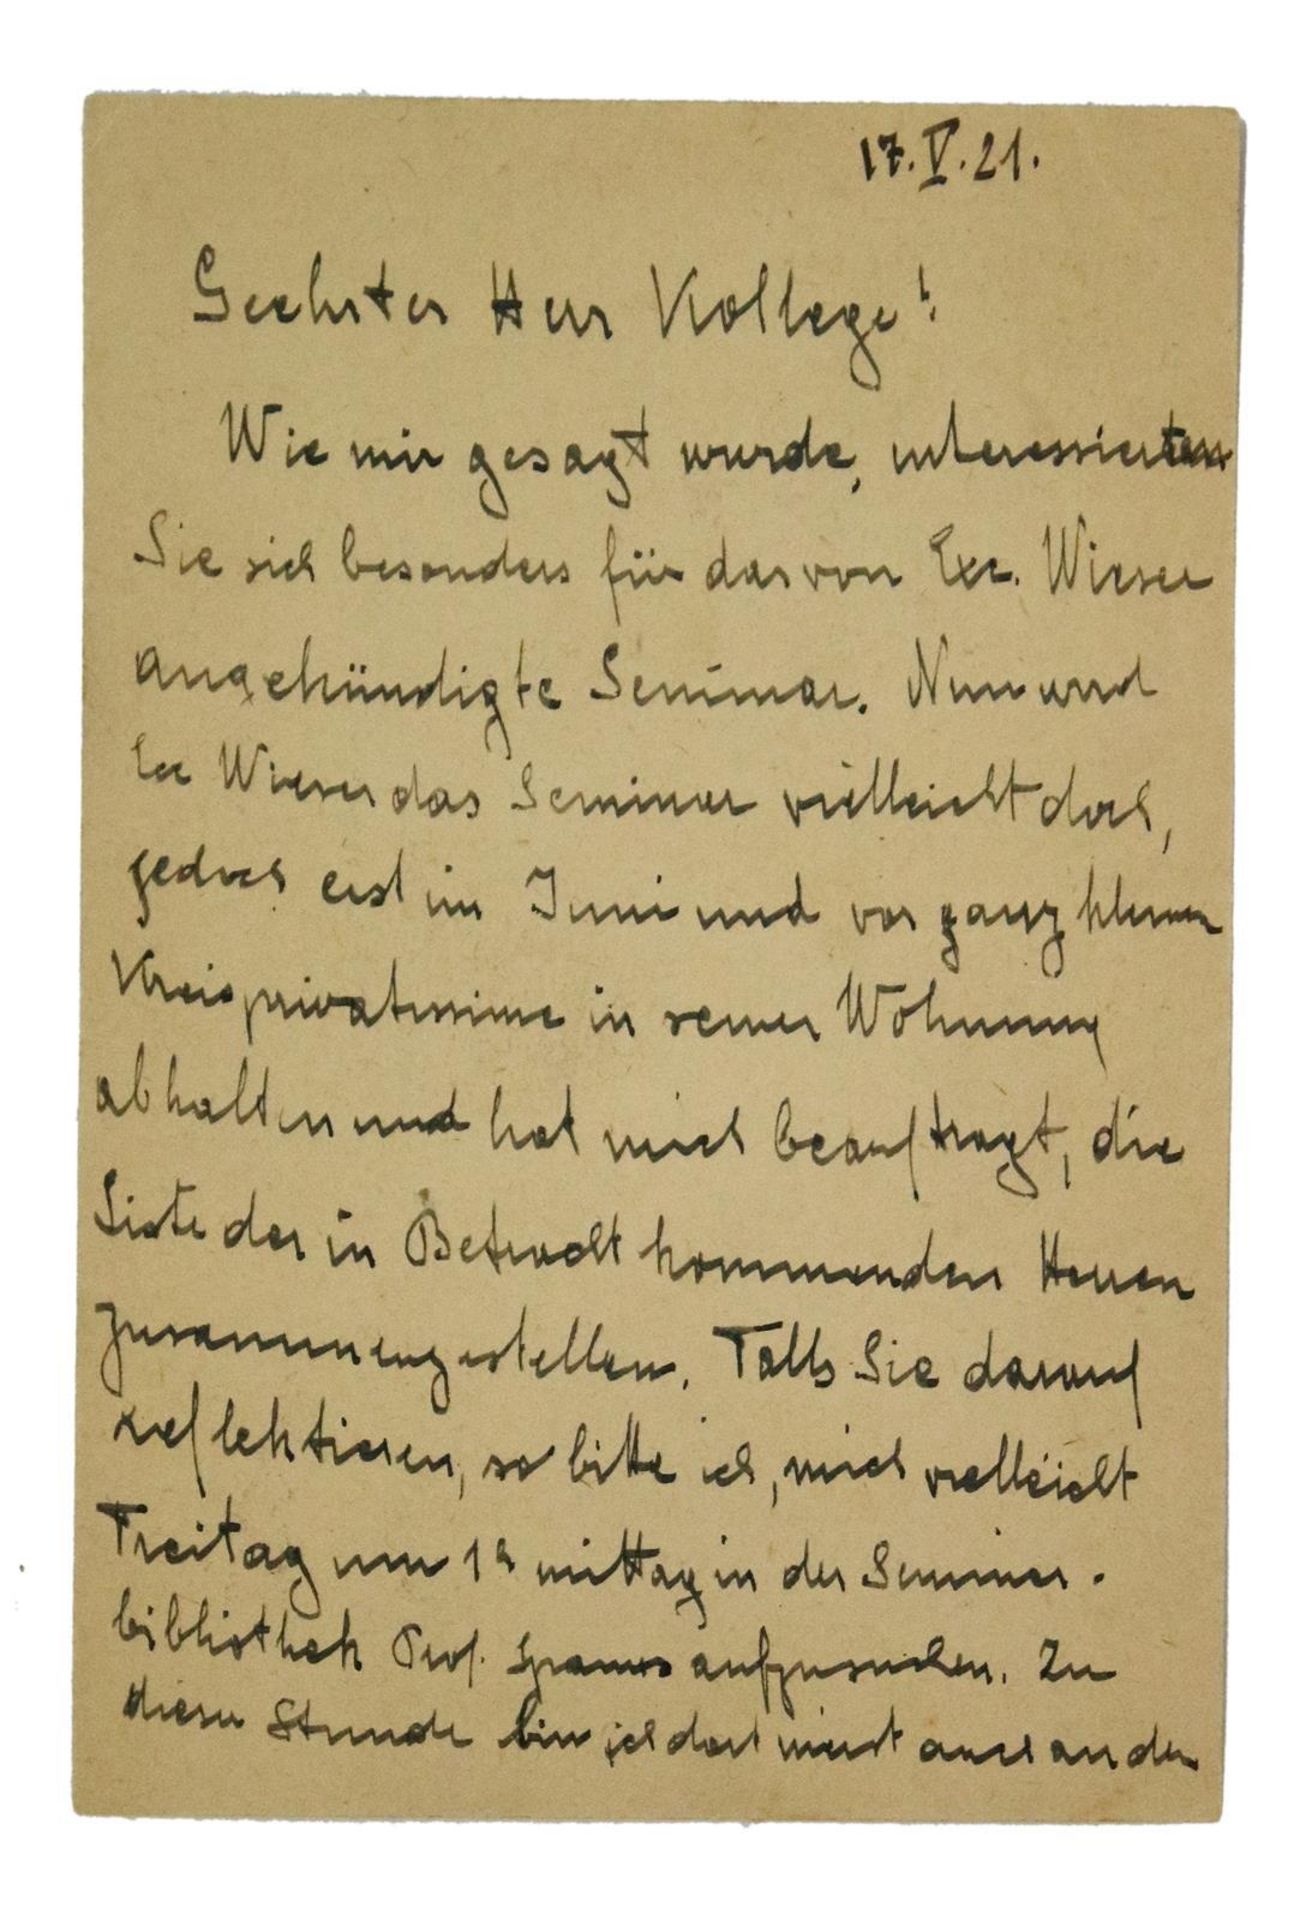 17. V. 21.
Geehrter Herr Kollege!
Wie mir gesagt wurde, interessierten
Sie sich besonders für das von Exc. Wieser
angekündigte Seminar. Nun wird
Exc Wieser das Seminar vielleicht doch,
jedoch erst im Juni und vor ganz kleinem
Kreis privatissime in seiner Wohnung
abhalten und hat mich beauftragt, die
Liste der in Betracht kommenden Herren
zusammenzustellen. Falls Sie darauf
reflektieren, so bitte ich, mich vielleicht
Freitag um 1h mittag in der Seminar-
bibliothek Prof. Spanns aufzusuchen. Zu
dieser Stunde bin ich dort meist auch an den